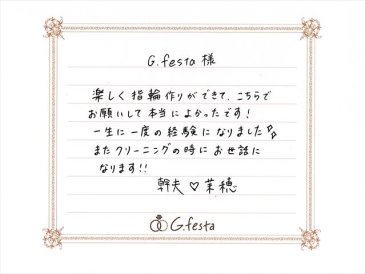 G.festa 様
楽しく指輪作りができて、こちらで
お願いして本当によかったです!
一生に一度の経験になりました♪
またクリーニングの時にお世話に
なります!!
幹夫♡茉穂
G.festa